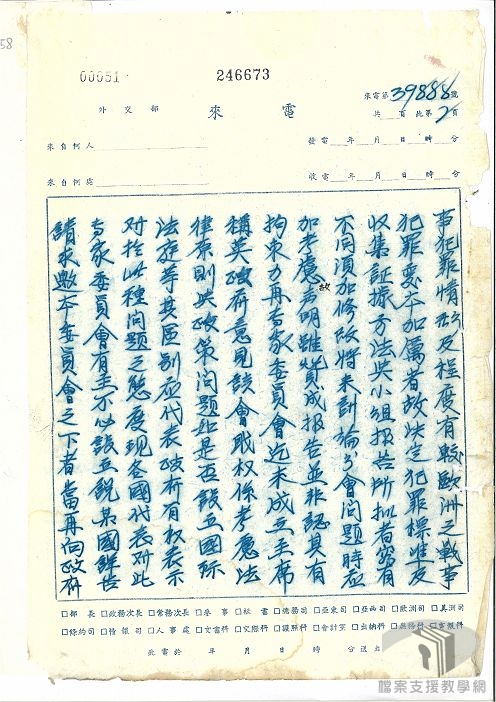 58
00051
246673
來電第39888號
外交部 來電
共 頁此第2頁
來自何人
發電 年 月 日 時 分
來自何處
收電 年 月 日 時 分
事犯罪情形及程度有較歐洲之戰事
犯罪變本加厲者故決定犯罪標準及
收集証據方法與小組報告所擬者容有
不同須加修改將來討論分會問題時應
加考慮故聲明雖贊成報告並非認其有
拘束力再專家委員會迄未成立主席
稱英政府意見該會職權係考慮法
律原則與政策問題如是否設立國際
法庭等其區別應代表政府有權表示
对於此種問題之態度現各國代表对此
專家委員會有主不必設立說某國
請求邀本委員會之下者當再向政府
□部長□政務次長□常務次長□參事□秘書□總務司□亞東司□亞西司□歐洲司□美洲司
□條約司□情報司□人事處□文書科□交際科□護照科□會計室□出納科□庶務科□電報科
此電於 年 月 日 時 分送出
檔案支援教學網